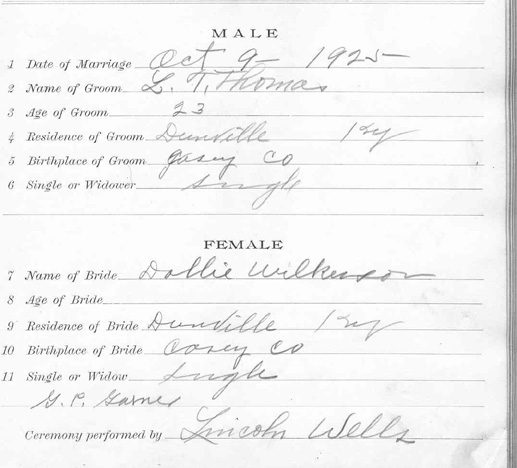 MALE
1 Date of Marriage Oct 9 - 1925
2 Name of Groom L. T. Thomas
3 Age of Groom 23
4 Residence of Groom Dunville Ky
5 Birthplace of Groom Casey Co
6 Single or Widower Single
FEMALE
7 Name of Bride Dollie Wilkerson
8 Age of Bride
9 Residence of Bride Dunville Ky
10 Birthplace of Bride Casey Co
11 Single or Widow Single
G. P. Garner
Ceremony performed by Lincoln Wells